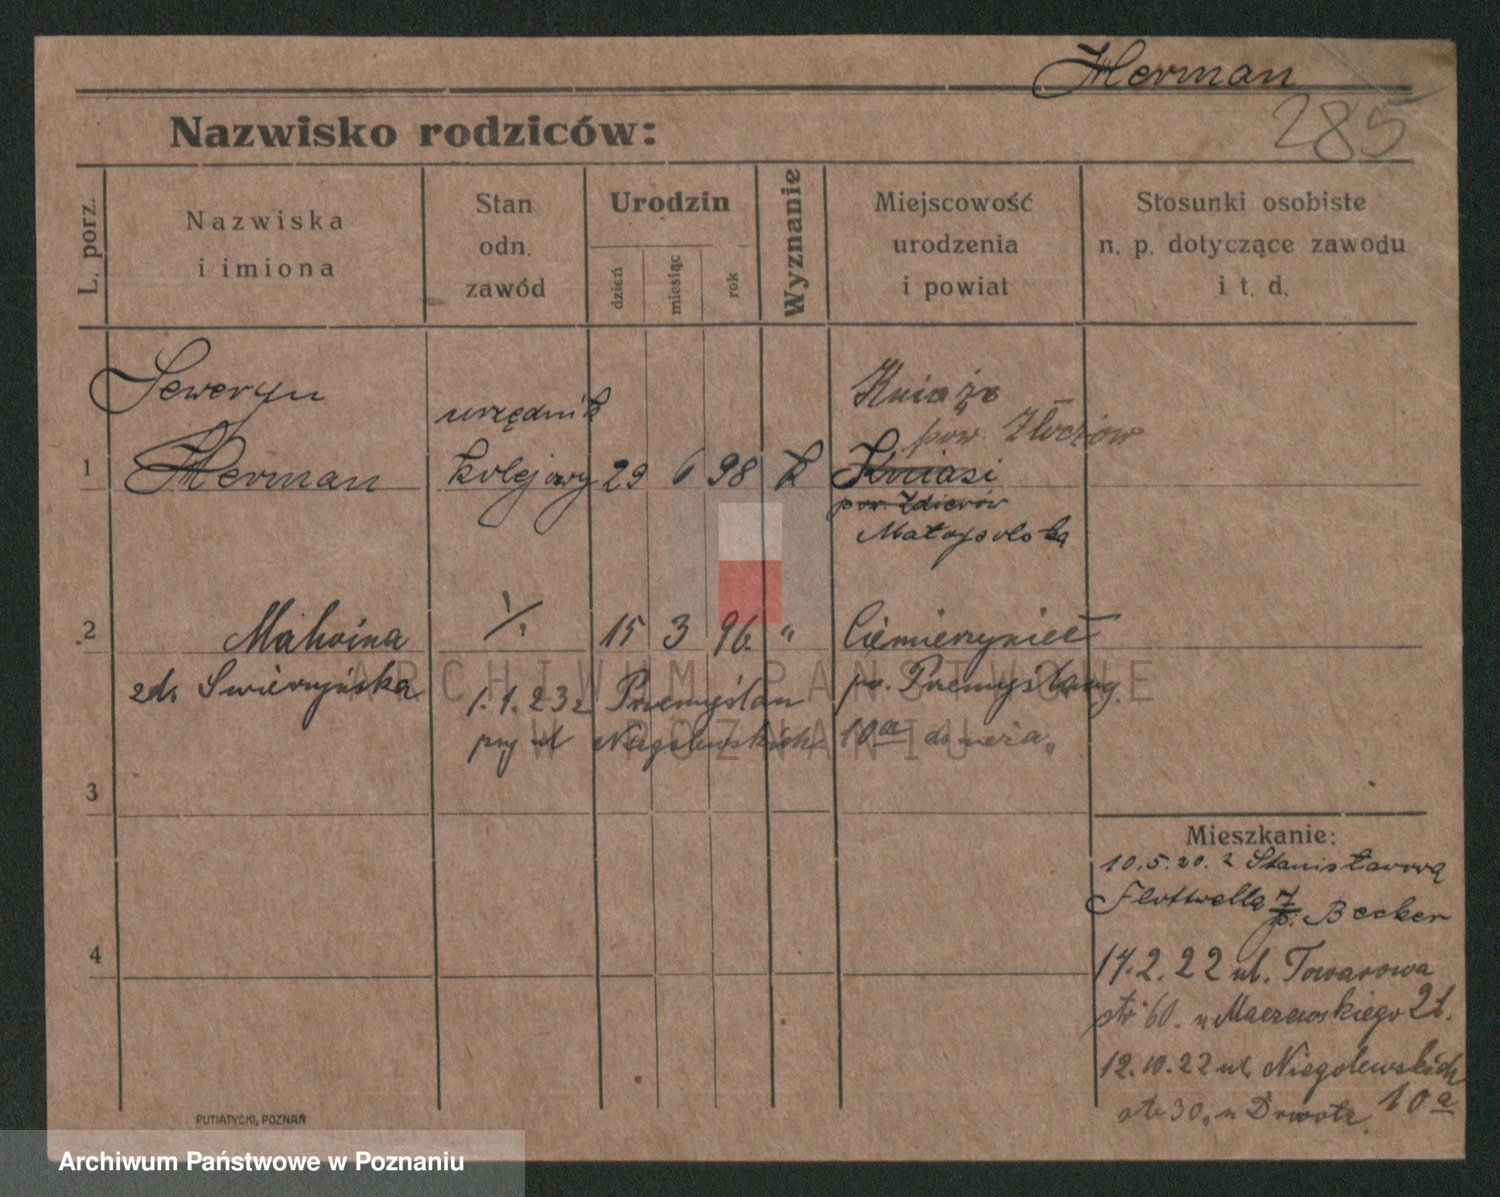 Herman
285
Nazwisko rodziców:
L. porz.
Nazwiska
i imiona
Stan
odn.
zawód
Urodzin
dzień
miesiąc
rok
Wyznanie
Miejscowość
urodzenia
i powiat
Stosunki osobiste
n. p. dotyczące zawodu
i t. d.
1
Seweryn
Herman
urzędnik
kolejowy
29
6
98
k
Kniaże
pow. Złoczów
Kniasi
pow. Zdierów
Małopolską
2
Malwina
zd. Swierzyńska
15
3
96.
"
pow. Przemyślany
1.1.23 z Przemyślan
Niegolewskich 10a do męża.
3
4
Mieszkanie:
10.5.20. z Stanisławową
Flottwella 7 p. Becker
17.2.22 ul. Towarowa
str 60. u Maczewskiego 21.
12.10.22 ul. Niegolewskich
10a
str 30. u Drwota
PUTIATYCKI, POZNAŃ
ARCHIWUM PAŃSTWOWE
W POZNANIU
Archiwum Państwowe w Poznaniu